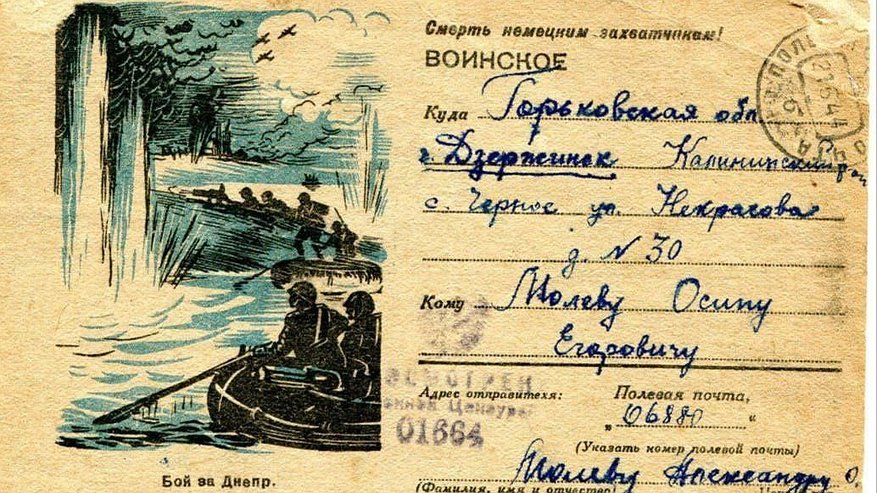 Смерть немецким захватчикам!
ВОИНСКОЕ
Куда Горьковская обл
г. Дзержинск Калининский р
с. Черное ул. Некрасова
д. N 30
Кому Молеву Осипу
Егоровичу
Адрес отправителя: Полевая почта,
„ 06880 “
(Указать номер полевой почты)
Молеву Александру О.
(Фамилия, имя и отчество)
Цензуры
01664
Бой за Днепр.